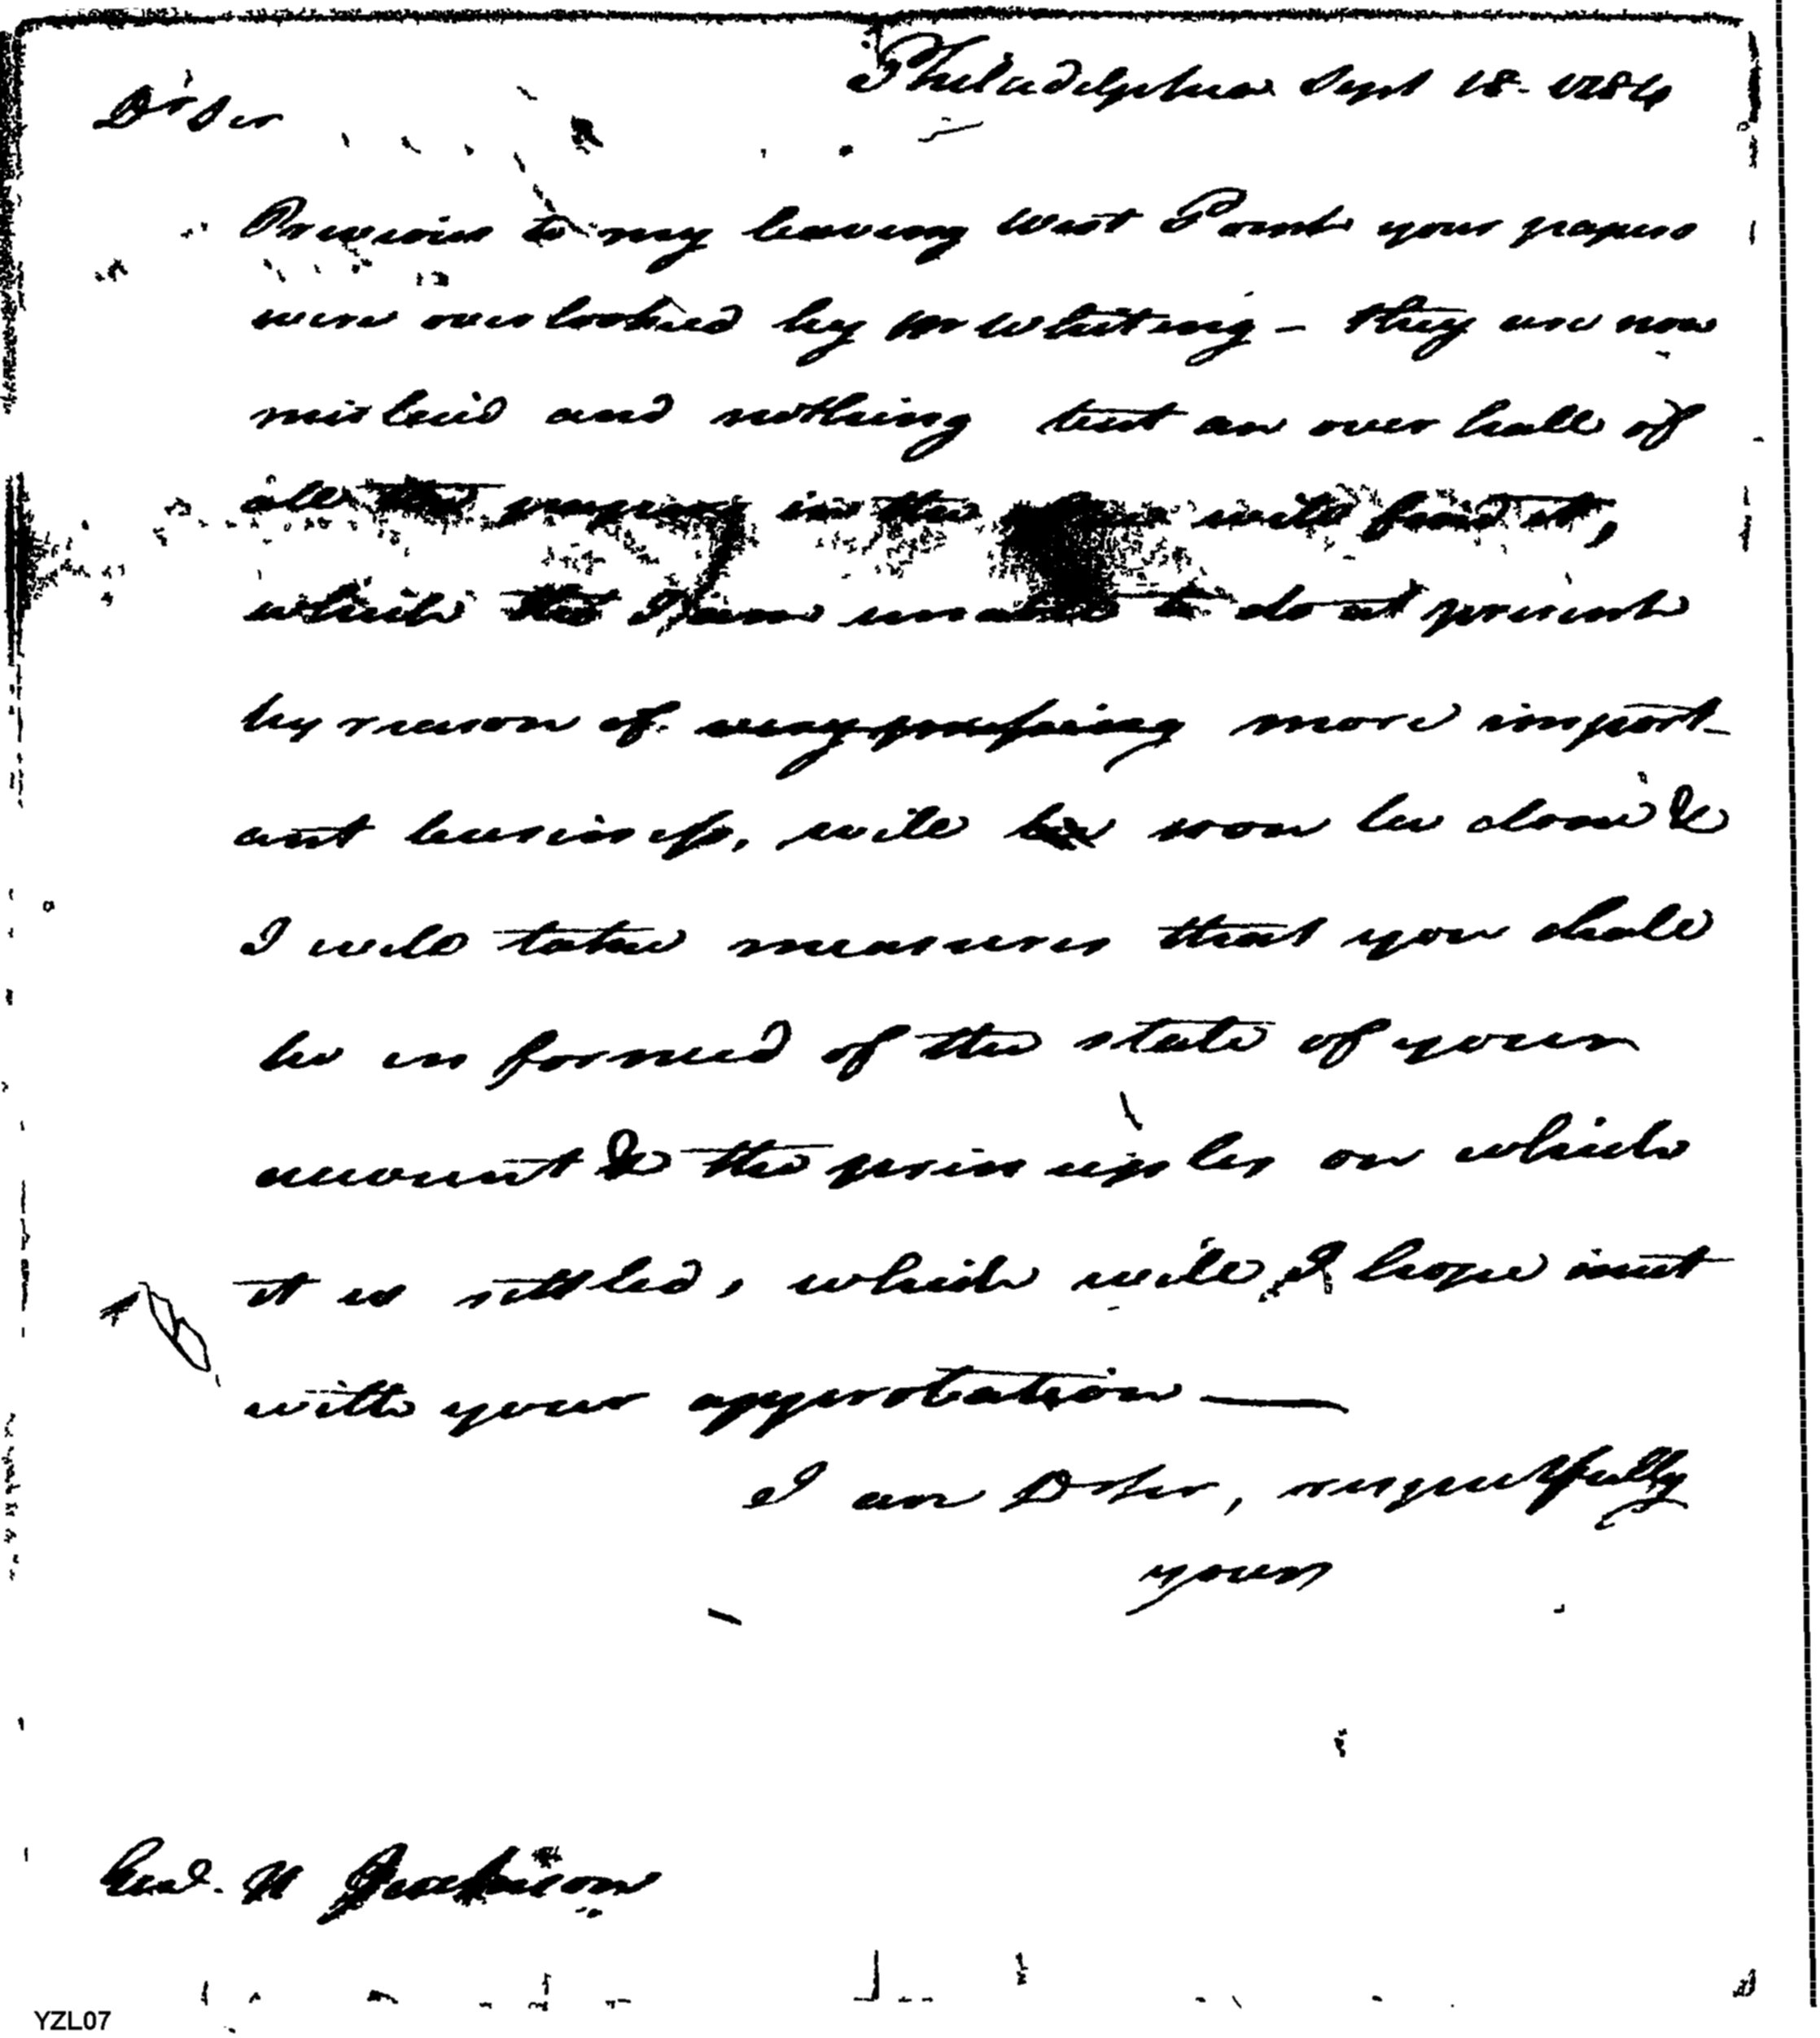 Philadelphia Sept 18. 1784
Dr Sir
Previous to my leaving West Point your papers
were overlooked by Mr Whiting – they are now
mislaid and nothing but an over hall of
all the papers in the will find it,
which tho I am unable to do at present
by reason of very pressing more import-
ant business, will soon be done &
I will take measures that you shall
be informed of the state of your
account & the principles on which
it is settled, which will I hope meet
with your approbation —
I am Dr Sir, respectfully
yours
Genl. H Jackson
YZL07